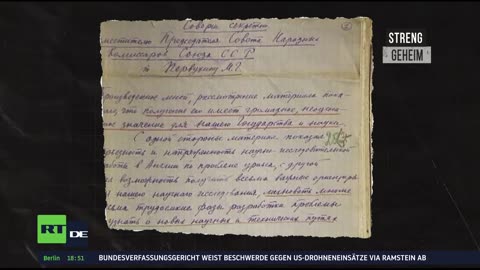 Совершенно секретно
Заместителю Председателя Совета Народных
Комиссаров Союза ССР
т. Первухину М.Г.
Произведенное мной, рассмотрение материала пока-
что получение его имеет громадное, неоцени-
значение для нашего Государства и науки.
С одной стороны материал показал
и напряженность научно-исследовательской
работы в Англии по проблеме урана, с другой
возможность получить весьма важные ориентиры
нашего научного исследования, миновать многие
весьма трудоемкие фазы разработки проблемы
узнать о новых научных и технических путях
STRENG
GEHEIM
RT DE
Berlin 18:51 BUNDESVERFASSUNGSGERICHT WEIST BESCHWERDE GEGEN US-DROHNENEINSÄTZE VIA RAMSTEIN AB